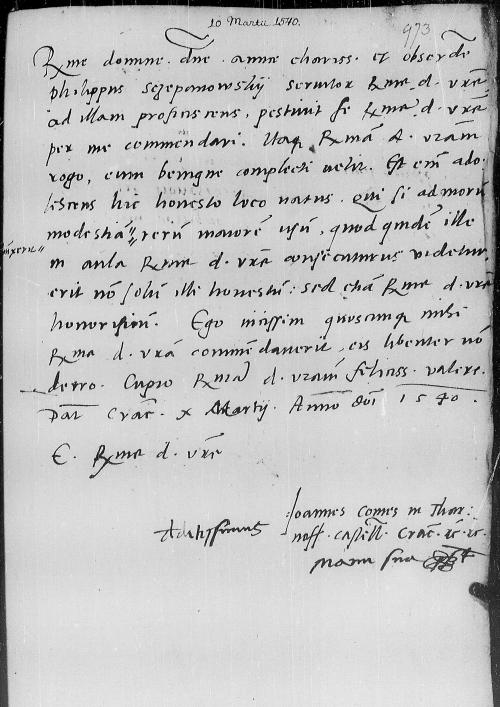 10 Martii 1540.
973
Rme domine. Dne. amice chariss. et obserde
Philippus Sczepanowskij seruitor Rme. d. vre
ad illam proficiscens, pestiuit se Rme d. vre
per me commendari. Itaq Rmā d. vram
rogo, eum benigne complecti velit. Est em ado-
lescens hic honesto loco natus. Qui si ad morū
modestiā, rerū maiorē usū, quod quidē ille
mxerit
in aula Rme d. vre consecuturus videtur
erit nō solū ille honestū: sed etiā Rme d. vre
honorificū. Ego vicissim quoscunq mihi
Rma d. vrā commēdauerit, eis libenter nō
deero. Cupio Rmā d. vram feliciss. valere.
Dat Crac. x Martij. Anno dni 1540.
E. Rme d. vre
Addictissimus
Joannes Comes in Thar-
noff. Castell. Crac. zc. zc.
Manu sua sst